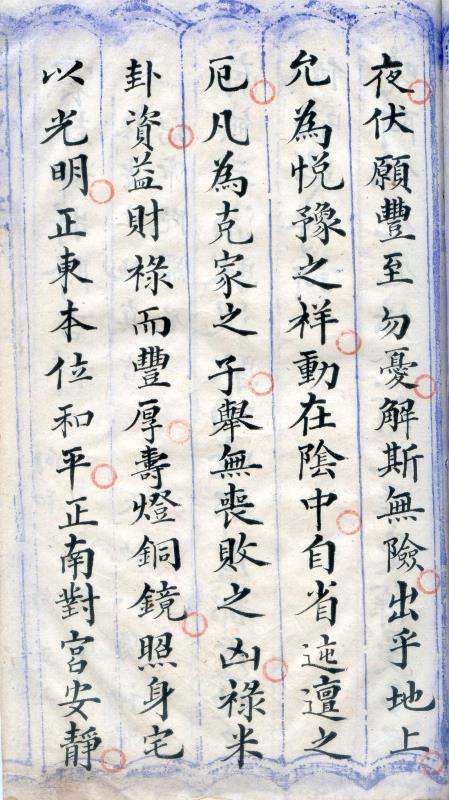 夜伏願豐至勿憂解斯無險出乎地上
允為悦豫之祥動在陰中自省迍邅之
厄凡為克家之子舉無喪敗之凶祿米
卦資益財祿而豐厚壽燈銅鏡照身宅
以光明正東本位和平正南對宮安靜